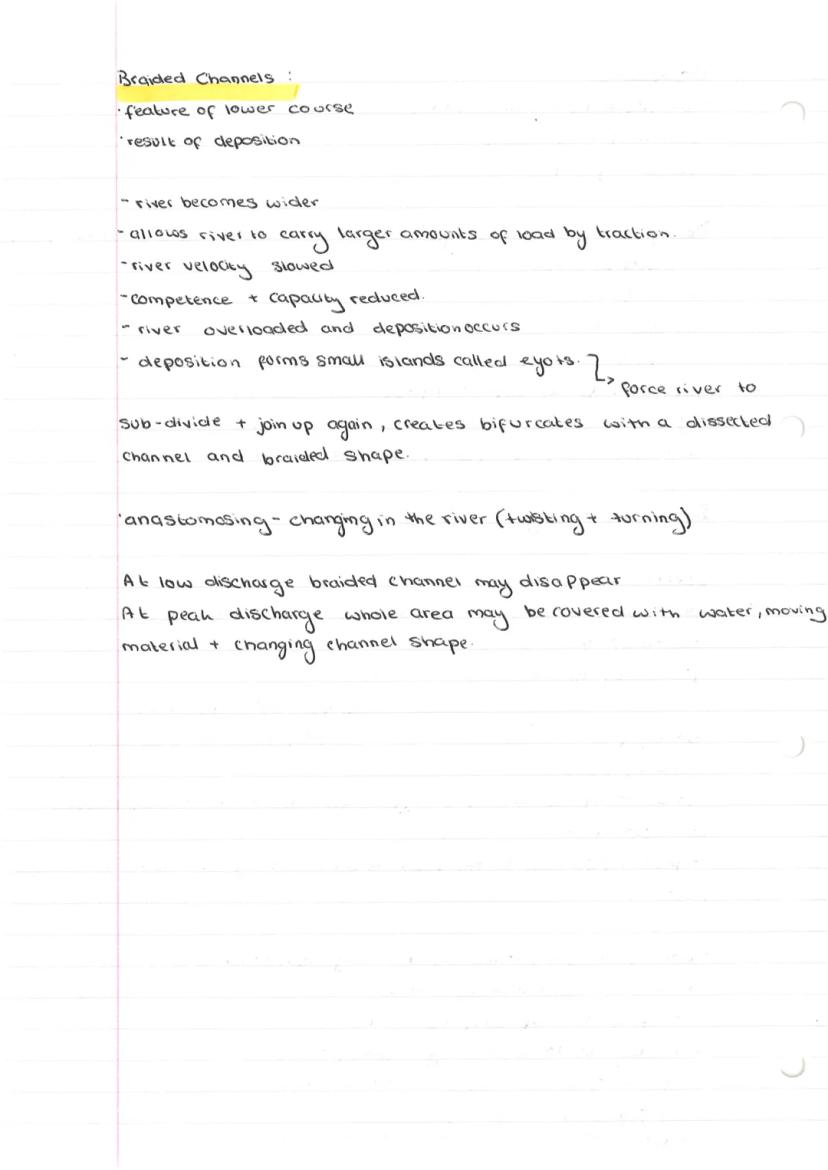 Braided Channels :
· feature of lower course
· result of deposition
- river becomes wider
- allows river to carry larger amounts of load by traction.
- river velocity slowed
- competence + capacity reduced.
- river overloaded and deposition occurs
- deposition forms small islands called eyots.
↳ force river to
sub-divide + join up again, creates bifurcates with a dissected
channel and braided shape.
· anastomosing - changing in the river (twisting + turning)
At low discharge braided channel may disappear
At peak discharge whole area may be covered with water, moving
material + changing channel shape.